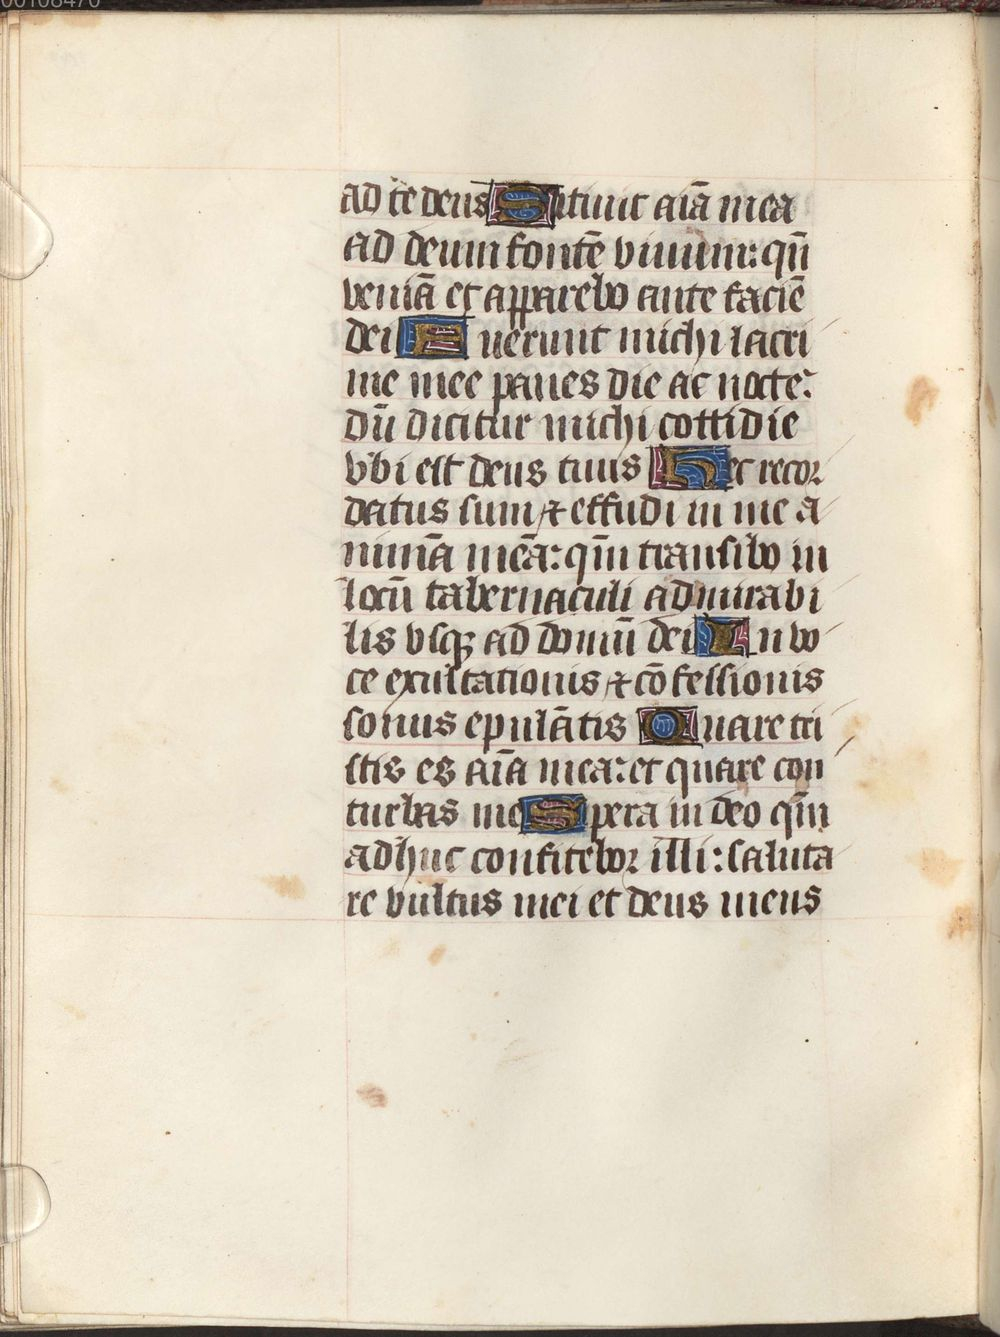 00108470
ad te deus Sitiuit aīa mea
ad deum fontē viuum: qn̄
veniā et apparebo ante faciē
dei Fuerunt michi lacri
me mee panes die ac nocte:
dū dicitur michi cottidie
vbi est deus tuus Hec recor
datus sum & effudi in me a
nimā meā: qm̄ transibo in
locū tabernaculi admirabi
lis vsqꝫ ad domū dei In vo
ce exultationis & cōfessionis
sonus epulātis Quare tri
stis es aīa mea: et quare con
turbas me Spera in deo qm̄
adhuc confitebor illi: saluta
re vultus mei et deus meus